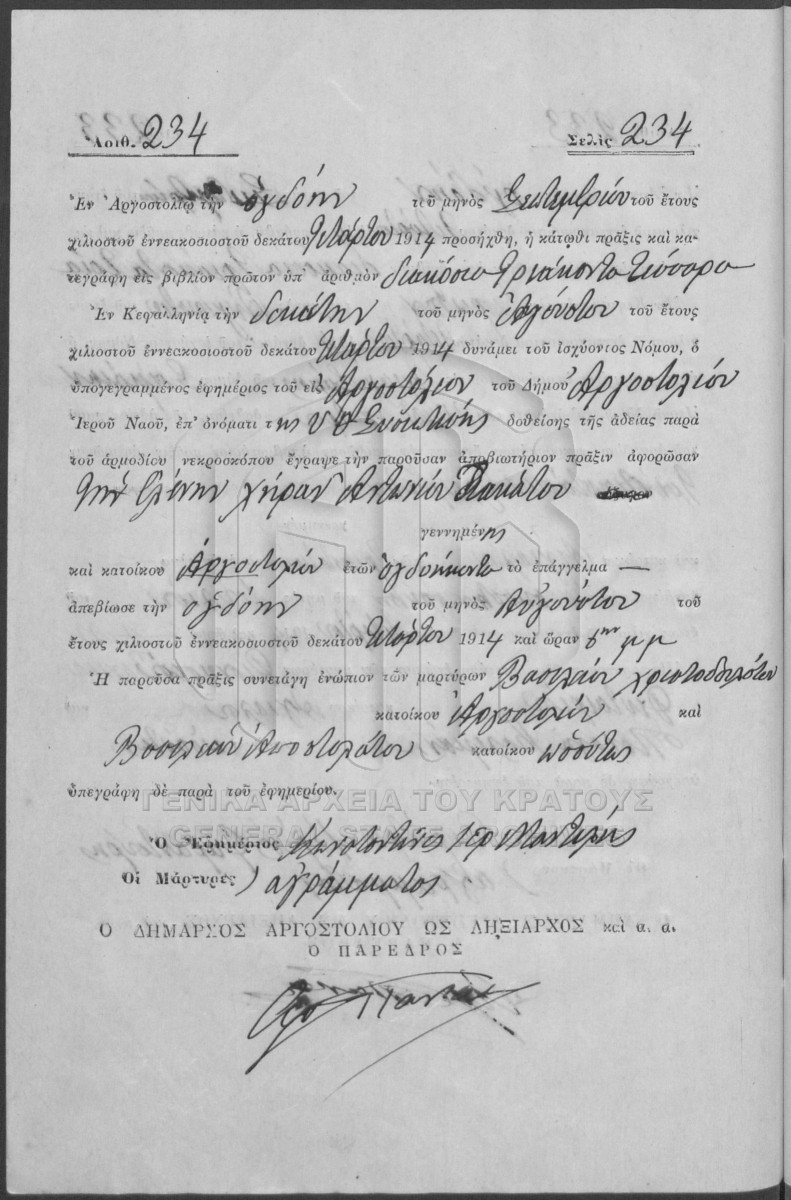 Ἀριθ. 234
Σελὶς 234
Ἐν Ἀργοστολίῳ τὴν ὀγδόην τοῦ μηνὸς Σεπτεμβρίου τοῦ ἔτους
χιλιοστοῦ ἐννεακοσιοστοῦ δεκάτου τετάρτου 1914 προσήχθη, ἡ κάτωθι πρᾶξις καὶ κα-
τεγράφη εἰς βιβλίον πρῶτον ὑπ' ἀριθμὸν διακόσια τριάκοντα τέσσαρα
Ἐν Κεφαλληνίᾳ τὴν δεκάτην τοῦ μηνὸς Αὐγούστου τοῦ ἔτους
χιλιοστοῦ ἐννεακοσιοστοῦ δεκάτου τετάρτου 1914 δυνάμει τοῦ ἰσχύοντος Νόμου, ὁ
ὑπογεγραμμένος ἐφημέριος τοῦ εἰς Ἀργοστόλιον τοῦ Δήμου Ἀργοστολίου
Ἱεροῦ Ναοῦ, ἐπ' ὀνόματι της Υ Θ δοθείσης τῆς ἀδείας παρὰ
τοῦ ἁρμοδίου νεκροσκόπου ἔγραψε τὴν παροῦσαν ἀποβιωτήριον πρᾶξιν ἀφορῶσαν
τὴν Ἑλένην χήραν Ἀντωνίου
γεννημένης
καὶ κατοίκου Ἀργοστολίου ἐτῶν ὀγδοήκοντα τὸ ἐπάγγελμα —
ἀπεβίωσε τὴν ὀγδόην τοῦ μηνὸς Αὐγούστου τοῦ
ἔτους χιλιοστοῦ ἐννεακοσιοστοῦ δεκάτου τετάρτου 1914 καὶ ὥραν μ μ
Ἡ παροῦσα πρᾶξις συνετάγη ἐνώπιον τῶν μαρτύρων Βασιλείου Χριστοδουλάτου
κατοίκου Ἀργοστολίου καὶ
Βασιλείου Ἀποστολάτου κατοίκου ὡσαύτως
ὑπεγράφη δὲ παρὰ τοῦ ἐφημερίου.
ΓΕΝΙΚΑ ΑΡΧΕΙΑ ΤΟΥ ΚΡΑΤΟΥΣ
GENERAL STATE
Ὁ Ἐφημέριος Κωνσταντῖνος ἱερ
Οἱ Μάρτυρες) ἀγράμματος
Ο ΔΗΜΑΡΧΟΣ ΑΡΓΟΣΤΟΛΙΟΥ ΩΣ ΛΗΞΙΑΡΧΟΣ καὶ α. α.
Ο ΠΑΡΕΔΡΟΣ